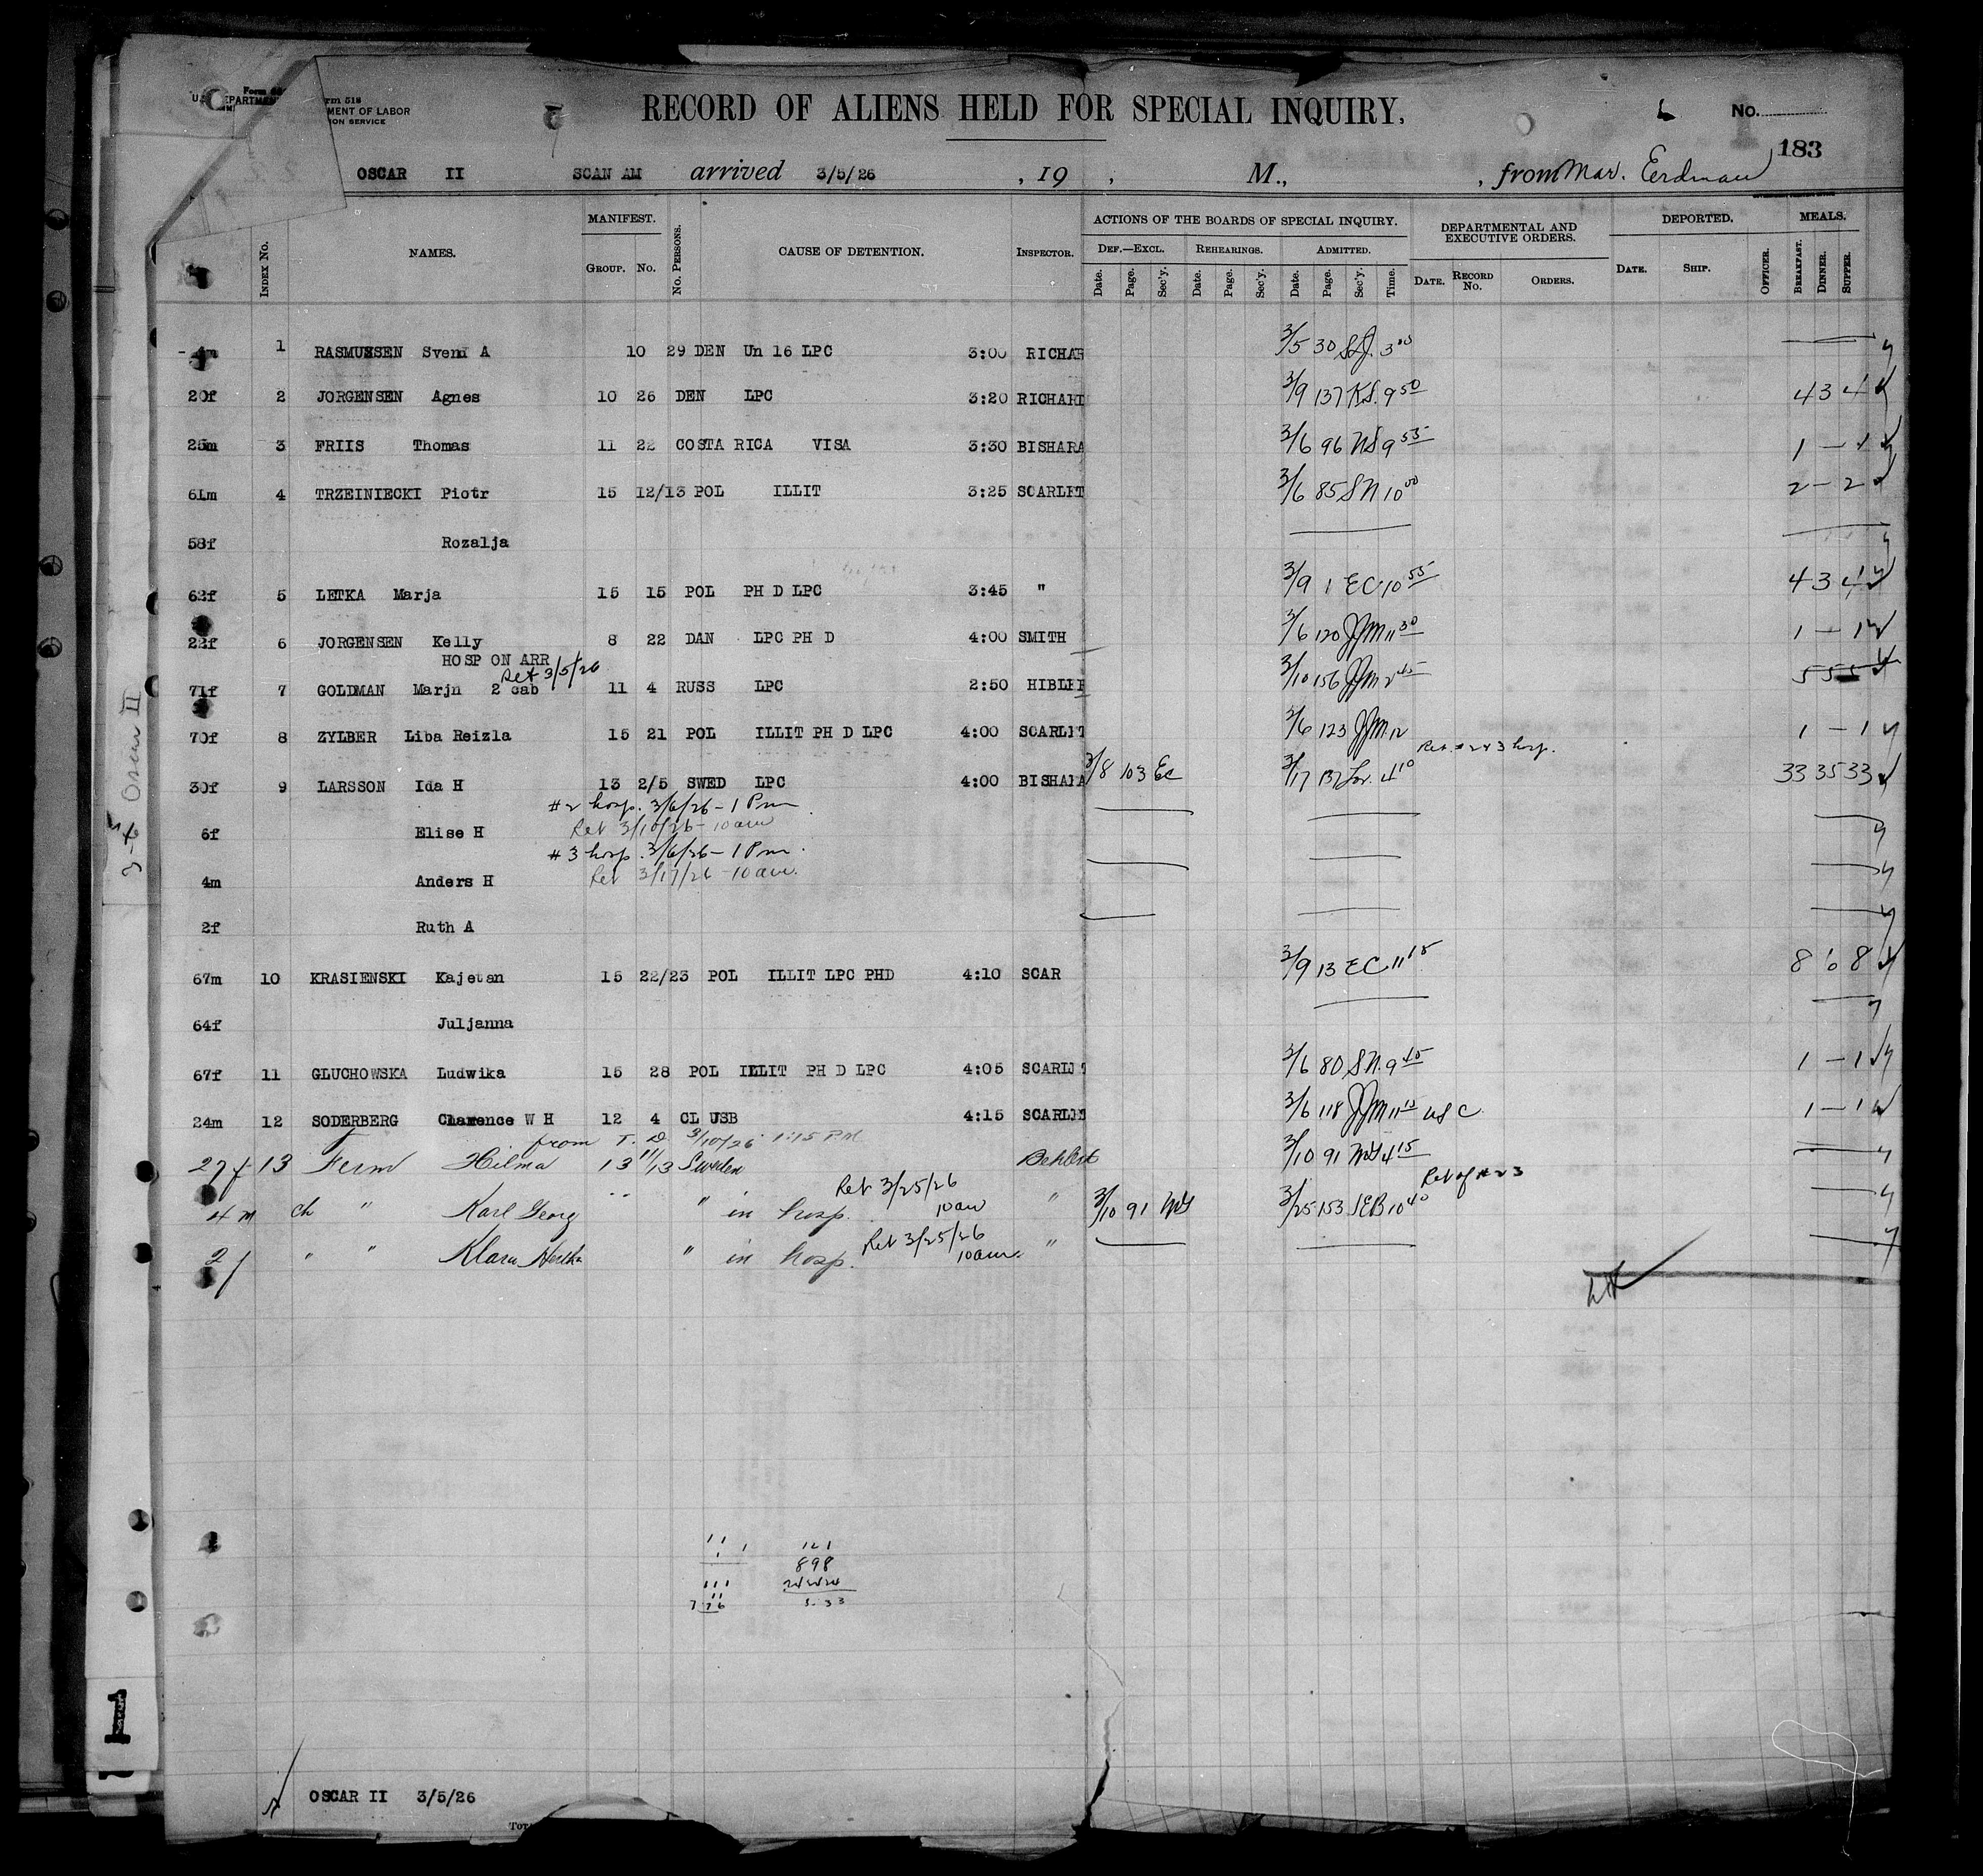 Form 518
MENT OF LABOR
ION SERVICE
RECORD OF ALIENS HELD FOR SPECIAL INQUIRY.
No.
183
OSCAR II SCAN AM arrived 3/5/26 , 19 , M., , from Mar. Eerdman
INDEX No. NAMES. MANIFEST. GROUP. No. No. PERSONS. CAUSE OF DETENTION. INSPECTOR. ACTIONS OF THE BOARDS OF SPECIAL INQUIRY. DEPARTMENTAL AND EXECUTIVE ORDERS. DEPORTED. MEALS.
DEF.—EXCL. REHEARINGS. ADMITTED.
Date. Page. Sec'y. Date. Page. Sec'y. Date. Page. Sec'y. Time. DATE. RECORD No. ORDERS. DATE. SHIP. OFFICER. BREAKFAST. DINNER. SUPPER.
4m 1 RASMUSSEN Svend A 10 29 DEN Un 16 LPC 3:00 RICHAR 3/5 30 3 00
20f 2 JORGENSEN Agnes 10 26 DEN LPC 3:20 RICHARD 3/9 137 KS. 9 50 4 3 4
25m 3 FRIIS Thomas 11 22 COSTA RICA VISA 3:30 BISHARA 3/6 96 NS 9 55 1 – 1
61m 4 TRZEINIECKI Piotr 15 12/13 POL ILLIT 3:25 SCARLET 3/6 85 SN 10 00 2 – 2
58f Rozalja
62f 5 LETKA Marja 15 15 POL PH D LPC 3:45 " 3/9 1 EC 10 55 4 3 4
22f 6 JORGENSEN Kelly 8 22 DAN LPC PH D 4:00 SMITH 3/6 120 JJM 11 30 1 – 1
HOSP ON ARR
Ret 3/5/26
71f 7 GOLDMAN Marjn 2 cab 11 4 RUSS LPC 2:50 HIBLER 3/10 156 JJM 2 45 5 5 5
70f 8 ZYLBER Liba Reizla 15 21 POL ILLIT PH D LPC 4:00 SCARLET 3/6 123 JJM 12 1 – 1
Ret. #2 & 3 hosp.
30f 9 LARSSON Ida H 13 2/5 SWED LPC 4:00 BISHARA 3/8 103 EC 3/17 4 10 33 35 33
#2 hosp. 3/6/26 – 1 Pm
6f Elise H Ret 3/10/26 – 10 am
#3 hosp. 3/6/26 – 1 Pm.
4m Anders H Ret 3/17/26 – 10 am.
2f Ruth A
67m 10 KRASIENSKI Kajetan 15 22/23 POL ILLIT LPC PHD 4:10 SCAR 3/9 13 EC 11 15 8 6 8
64f Juljanna
67f 11 GLUCHOWSKA Ludwika 15 28 POL ILLIT PH D LPC 4:05 SCARLET 3/6 80 SN. 9 45 1 – 1
24m 12 SODERBERG Clarence W H 12 4 CL USB 4:15 SCARLET 3/6 118 JJM 11 15 US C 1 – 1
from T. D. 3/10/26 1:15 PM
27f 13 Ferm Hilma 13 11/13 Sweden 3/10 91 4 15
Ret of # 2 3
Ret 3/25/26
4m ch " Karl Georg " in hosp. 10 am " 3/10 91 3/25 153 SEB 10 40
Ret 3/25/26
2f " " Klara Hertha " in hosp. 10 am. "
121
898
OSCAR II 3/5/26
3-5 Oscar II
1